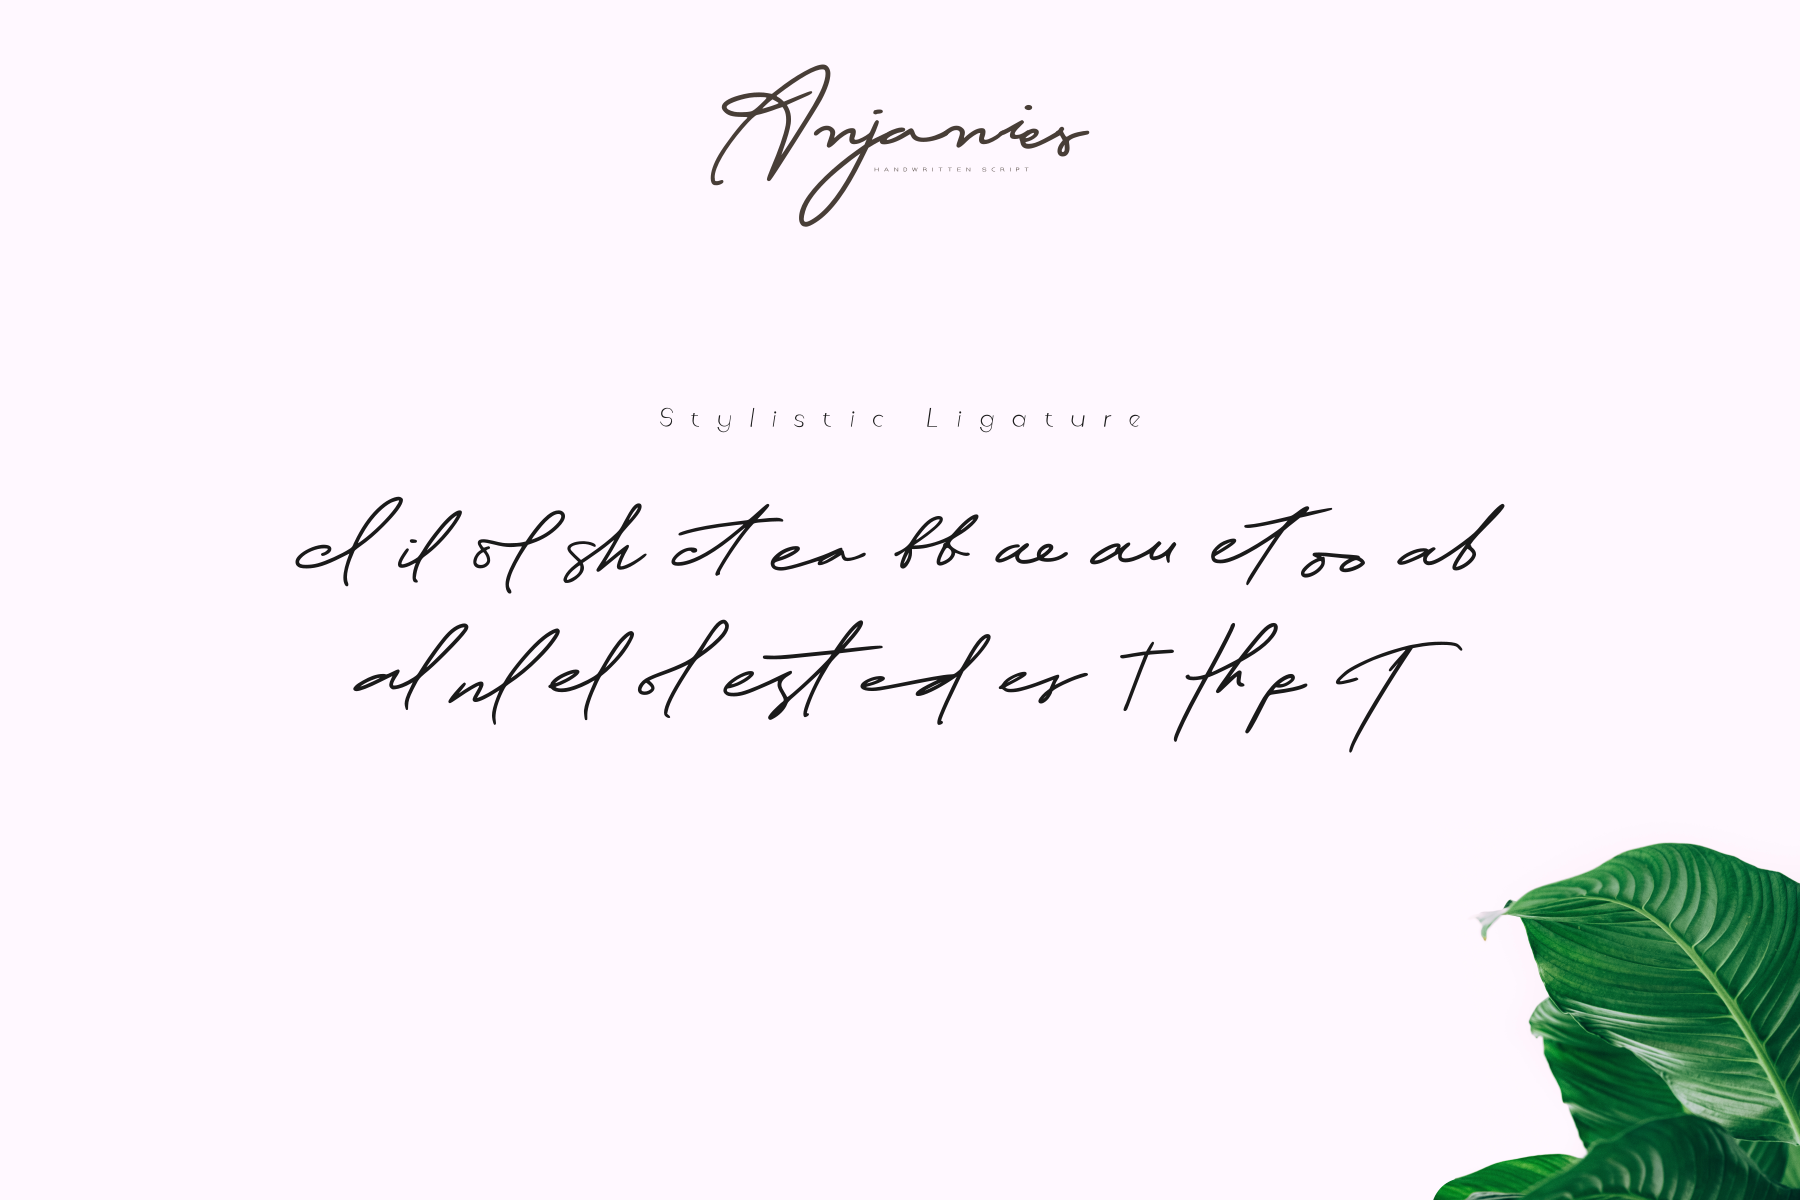 Anjanies
HANDWRITTEN SCRIPT
Stylistic Ligature
cl il ol sh ct ea bb ae au et oo ab
al nl el ol est ed es t th p T